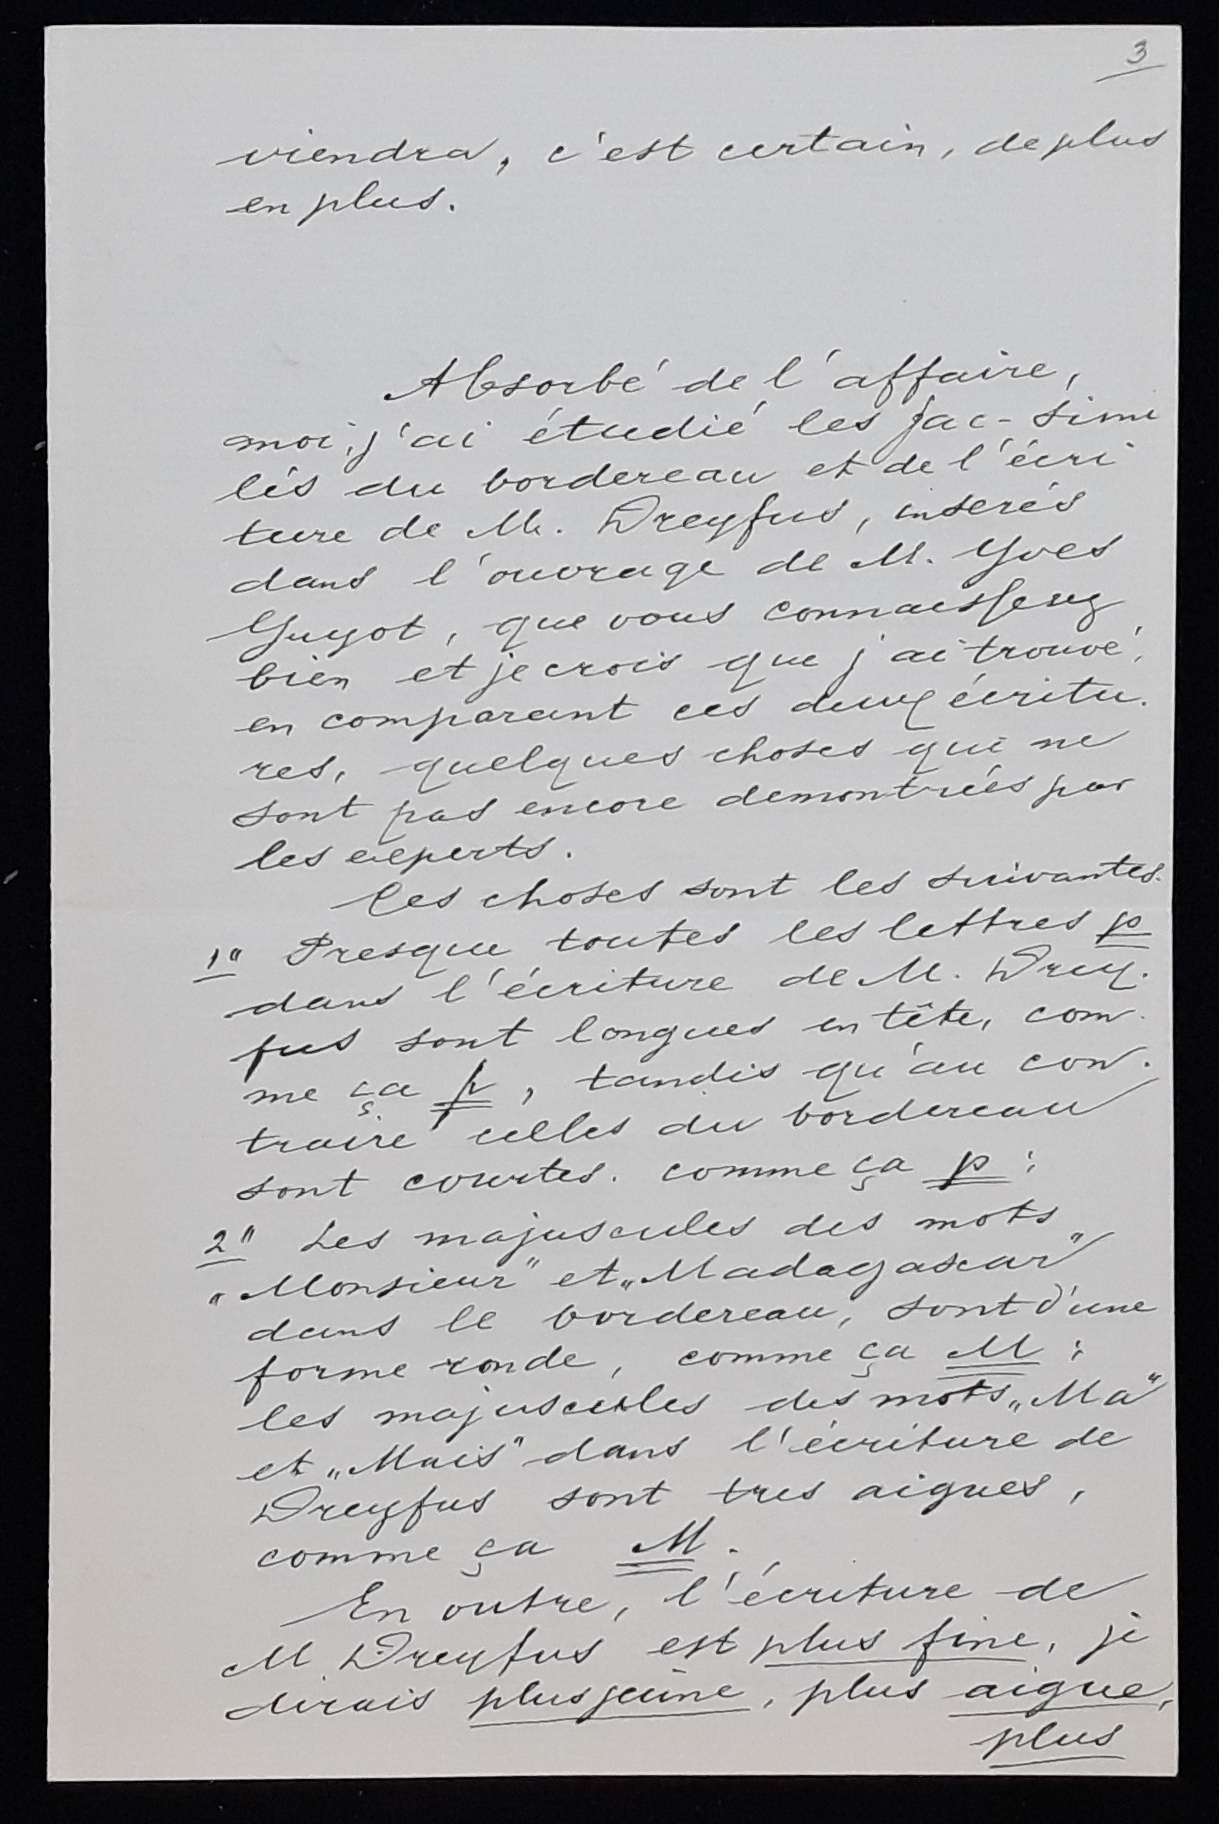 3
viendra, c'est certain, de plus
en plus.
Absorbé de l'affaire,
moi, j'ai étudié les fac-simi
lés du bordereau et de l'écri
ture de M. Dreyfus, insérés
dans l'ouvrage de M. Yves
Guyot, que vous connaissez
bien et je crois que j'ai trouvé,
en comparant ces deux écritu.
res, quelques choses qui ne
sont pas encore demontrées par
les experts.
Ces choses sont les suivantes.
1" Presque toutes les lettres p
dans l'écriture de M. Drey.
fus sont longues en tête, com.
me ça p, tandis qu'au con.
traire celles du bordereau
sont courtes. comme ça p;
2" Les majuscules des mots
„Monsieur" et „Madagascar"
dans le bordereau, sont d'une
forme ronde, comme ça M;
les majuscules des mots „Ma"
et „Mais" dans l'écriture de
Dreyfus sont tres aigues,
comme ça M.
En outre, l'écriture de
M Dreyfus est plus fine, je
dirais plus jeune, plus aigue,
plus